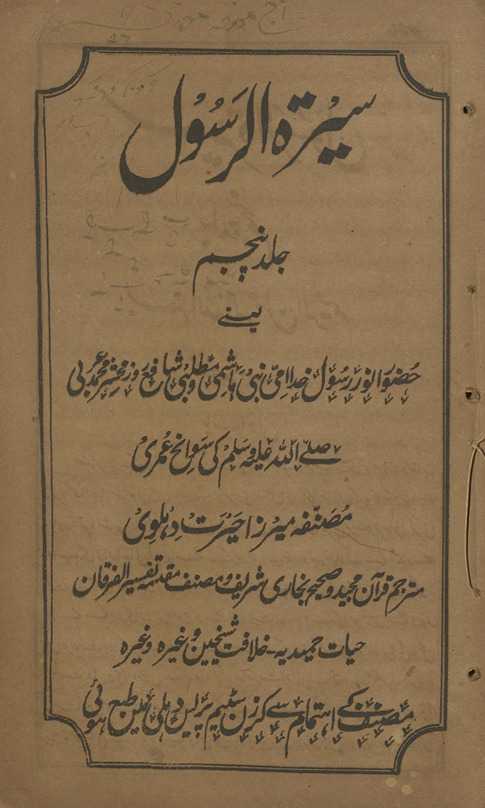 سیرۃ الرسول
جلد پنجم
یعنے
حضور انور رسول خدا امی نبی ہاشمی و مطلبی شافع روز محشر محمد عربی
صلے اللہ علیہ وسلم کی سوانح عمری
مصنفہ میرزا حیرت دہلوی
مترجم قرآن مجید و صحیح بخاری شریف و مصنف مقدمہ تفسیر الفرقان
حیات حمیدیہ - خلافت شیخین وغیرہ وغیرہ
مصنف کے اہتمام سے کرزن سٹیم پریس دہلی میں طبع ہوئی